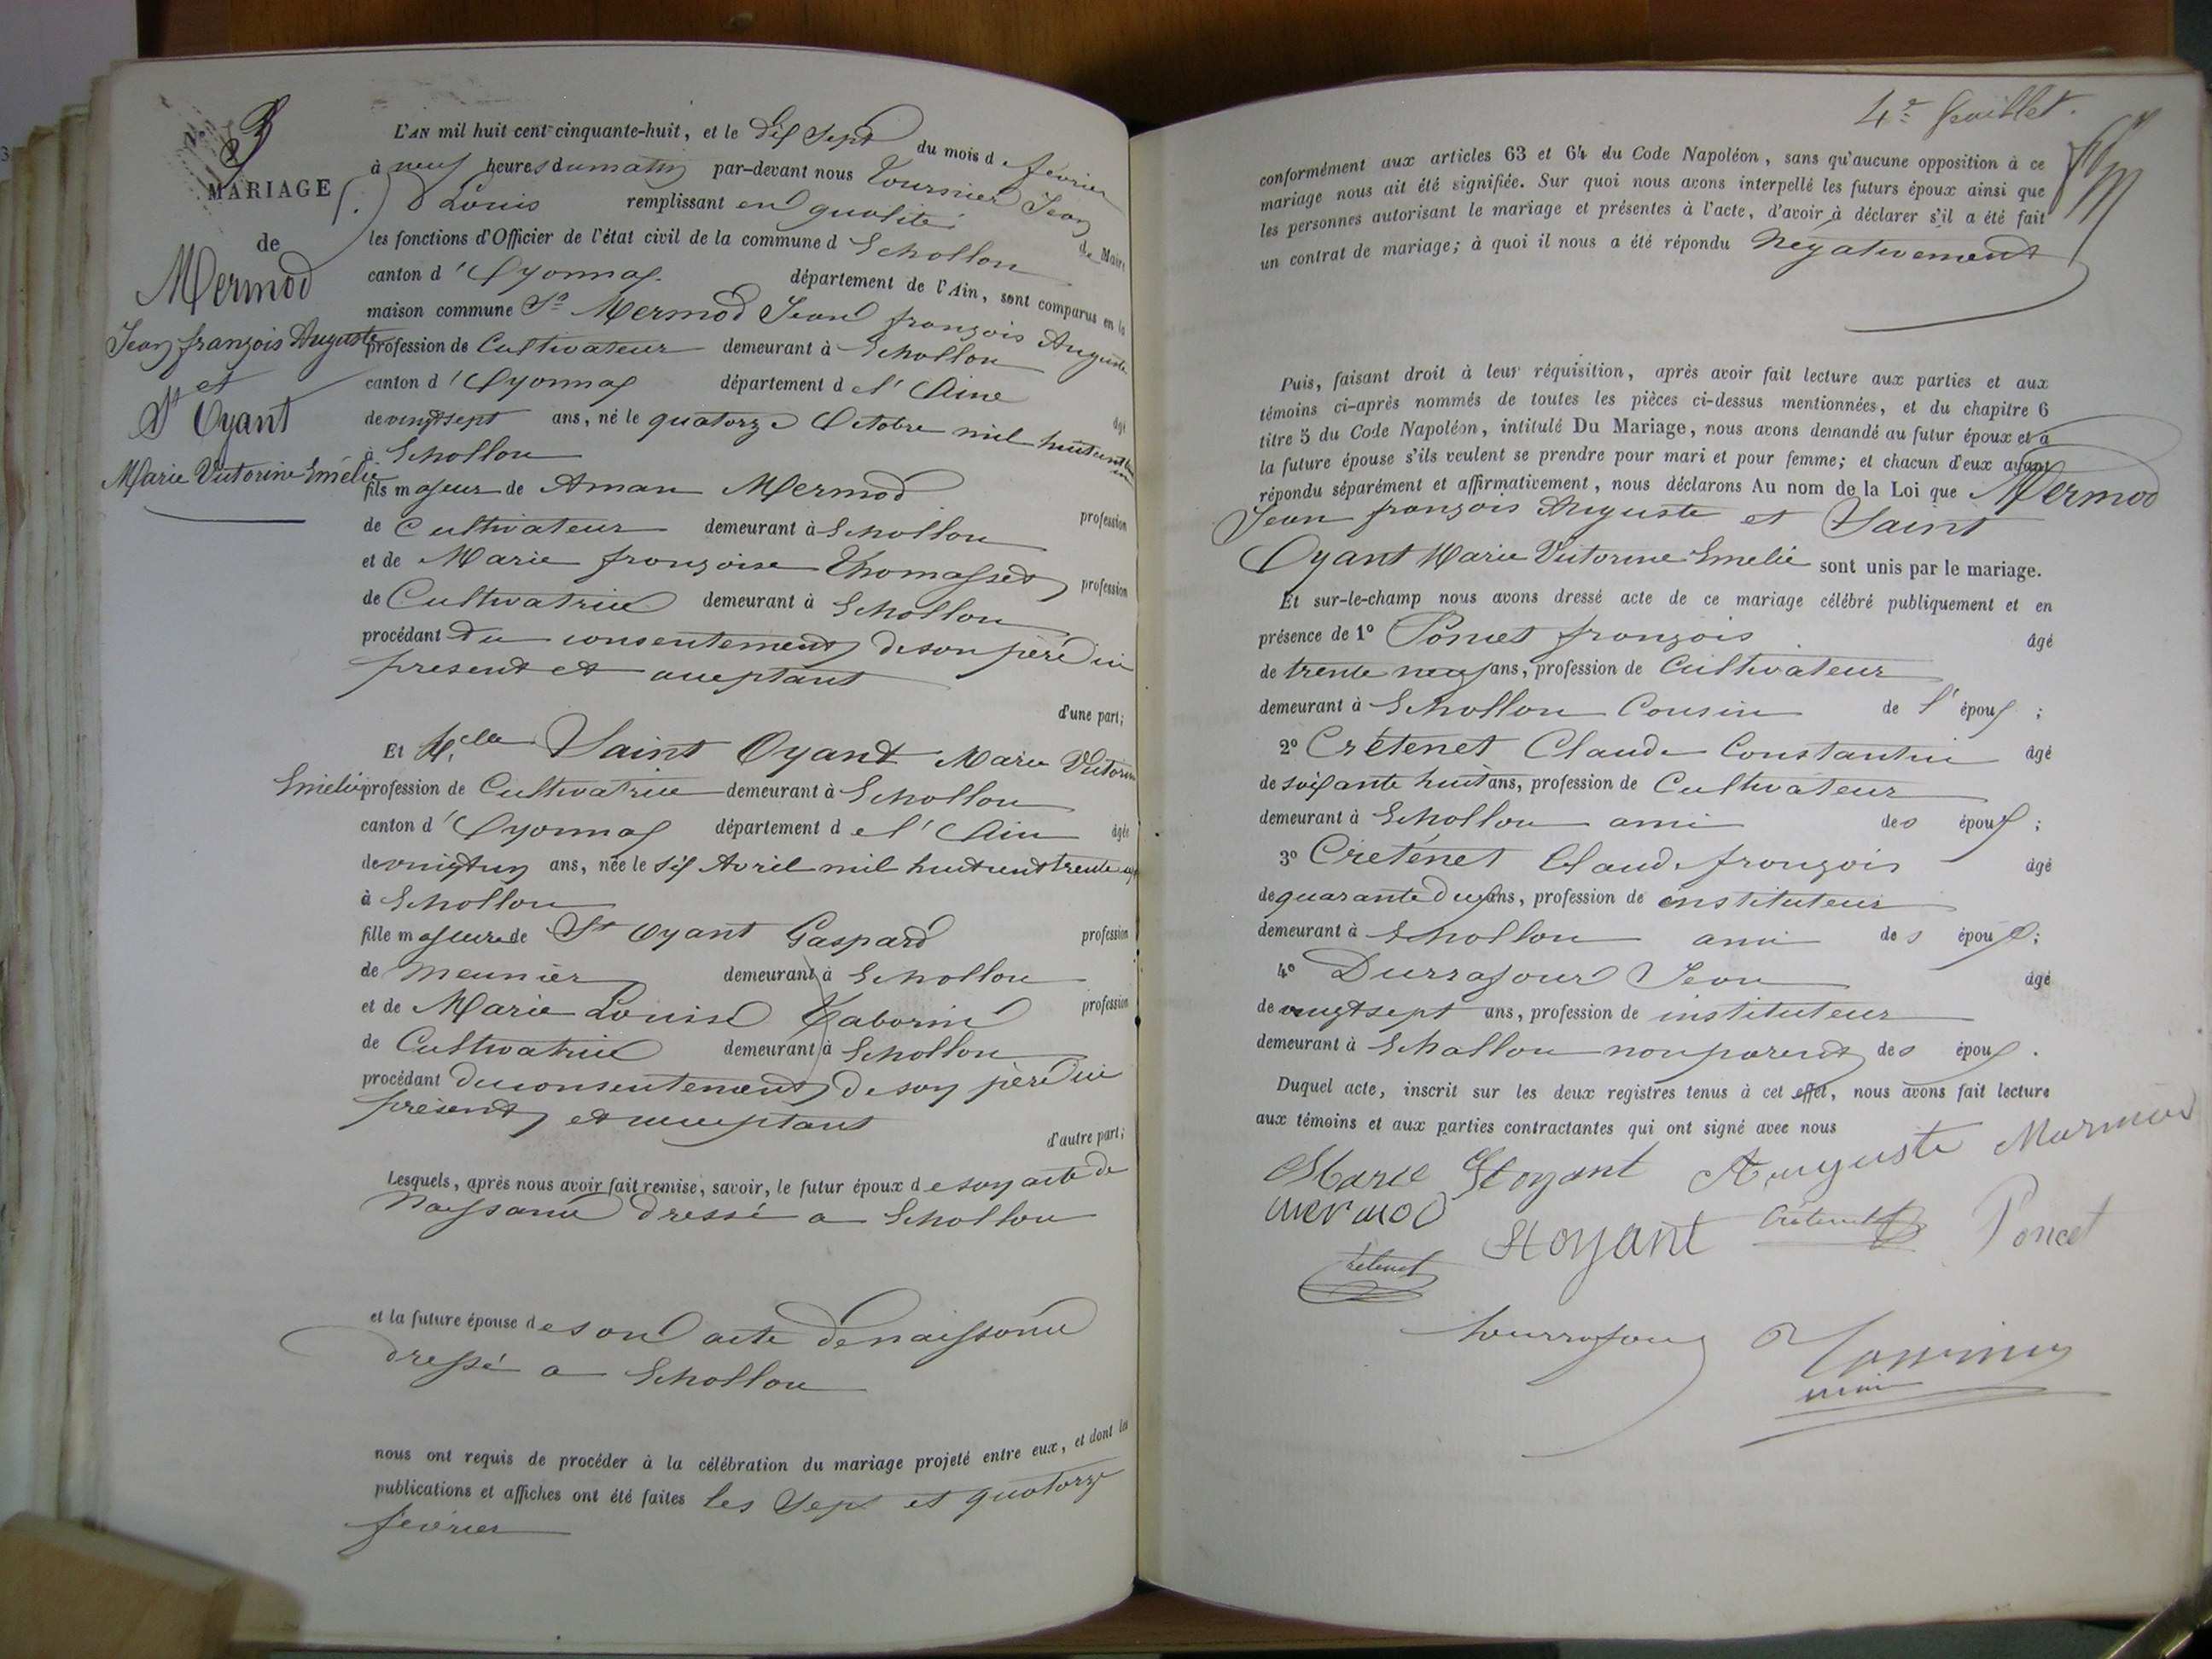 N° 3
MARIAGE
de
Mermod
Jean françois Auguste
et
St Oyant
Marie Victorine Emélie
L'AN mil huit cent cinquante-huit, et le dix sept du mois d fevrier
à neuf heures du matin par-devant nous Tournier Jean
Louis remplissant en qualité de Maire
les fonctions d'Officier de l'état civil de la commune d Echollon
canton d'Oyonnax département de l'Ain, sont comparus en la
maison commune Sr Mermod Jean françois Auguste
profession de Cultivateur demeurant à Echollon
canton d'Oyonnax département de l'Aine âgé
de vingt sept ans, né le quatorze Octobre mil huit cent
à Echollon
fils majeur de Aman Mermod profession
de Cultivateur demeurant à Echollon
et de Marie françoise Thomasset profession
de Cultivatrice demeurant à Echollon
procédant du consentement de son père ici
present et acceptant
d'une part;
Et Melle Saint Oyant Marie Victorine
Emélie profession de Cultivatrice demeurant à Echollon
canton d'Oyonnax département de l'Ain âgée
de vingt un ans, née le six Avril mil huit cent trente six
à Echollon
fille majeure de St Oyant Gaspard profession
de meunier demeurant à Echollon
et de Marie Louise Taborin profession
de Cultivatrice demeurant à Echollon
procédant du consentement de son père ici
présent et acceptant
d'autre part;
Lesquels, après nous avoir fait remise, savoir, le futur époux de son acte de
Naissance dressé a Echollon
et la future épouse de son acte de naissance
dressé a Echollon
nous ont requis de procéder à la célébration du mariage projeté entre eux, et dont les
publications et affiches ont été faites les Sept et quatorze
fevrier
4e feuillet.
conformément aux articles 63 et 64 du Code Napoléon, sans qu'aucune opposition à ce
mariage nous ait été signifiée. Sur quoi nous avons interpellé les futurs époux ainsi que
les personnes autorisant le mariage et présentes à l'acte, d'avoir à déclarer s'il a été fait
un contrat de mariage; à quoi il nous a été répondu Négativement
Puis, faisant droit à leur réquisition, après avoir fait lecture aux parties et aux
témoins ci-après nommés de toutes les pièces ci-dessus mentionnées, et du chapitre 6
titre 5 du Code Napoléon, intitulé Du Mariage, nous avons demandé au futur époux et à
la future épouse s'ils veulent se prendre pour mari et pour femme; et chacun d'eux ayant
répondu séparément et affirmativement, nous déclarons Au nom de la Loi que Mermod
Jean françois Auguste et Saint
Oyant Marie Victorine Emelie sont unis par le mariage.
Et sur-le-champ nous avons dressé acte de ce mariage célébré publiquement et en
présence de 1° Poncet françois âgé
de trente neuf ans, profession de Cultivateur
demeurant à Echollon Cousin de l'époux ;
2° Crétenet Claude Constantin âgé
de soixante huit ans, profession de Cultivateur
demeurant à Echollon ami des époux ;
3° Cretenet Claude françois âgé
de quarante deux ans, profession de instituteur
demeurant à Echollon ami des époux ;
4° Durrafour Jean âgé
de vingt sept ans, profession de instituteur
demeurant à Echallon non parent des époux .
Duquel acte, inscrit sur les deux registres tenus à cet effet, nous avons fait lecture
aux témoins et aux parties contractantes qui ont signé avec nous
Marie Stoyant Auguste Mermod
mermod Stoyant Crétenet Poncet
Cretenet
Durrafour Tournier
maire